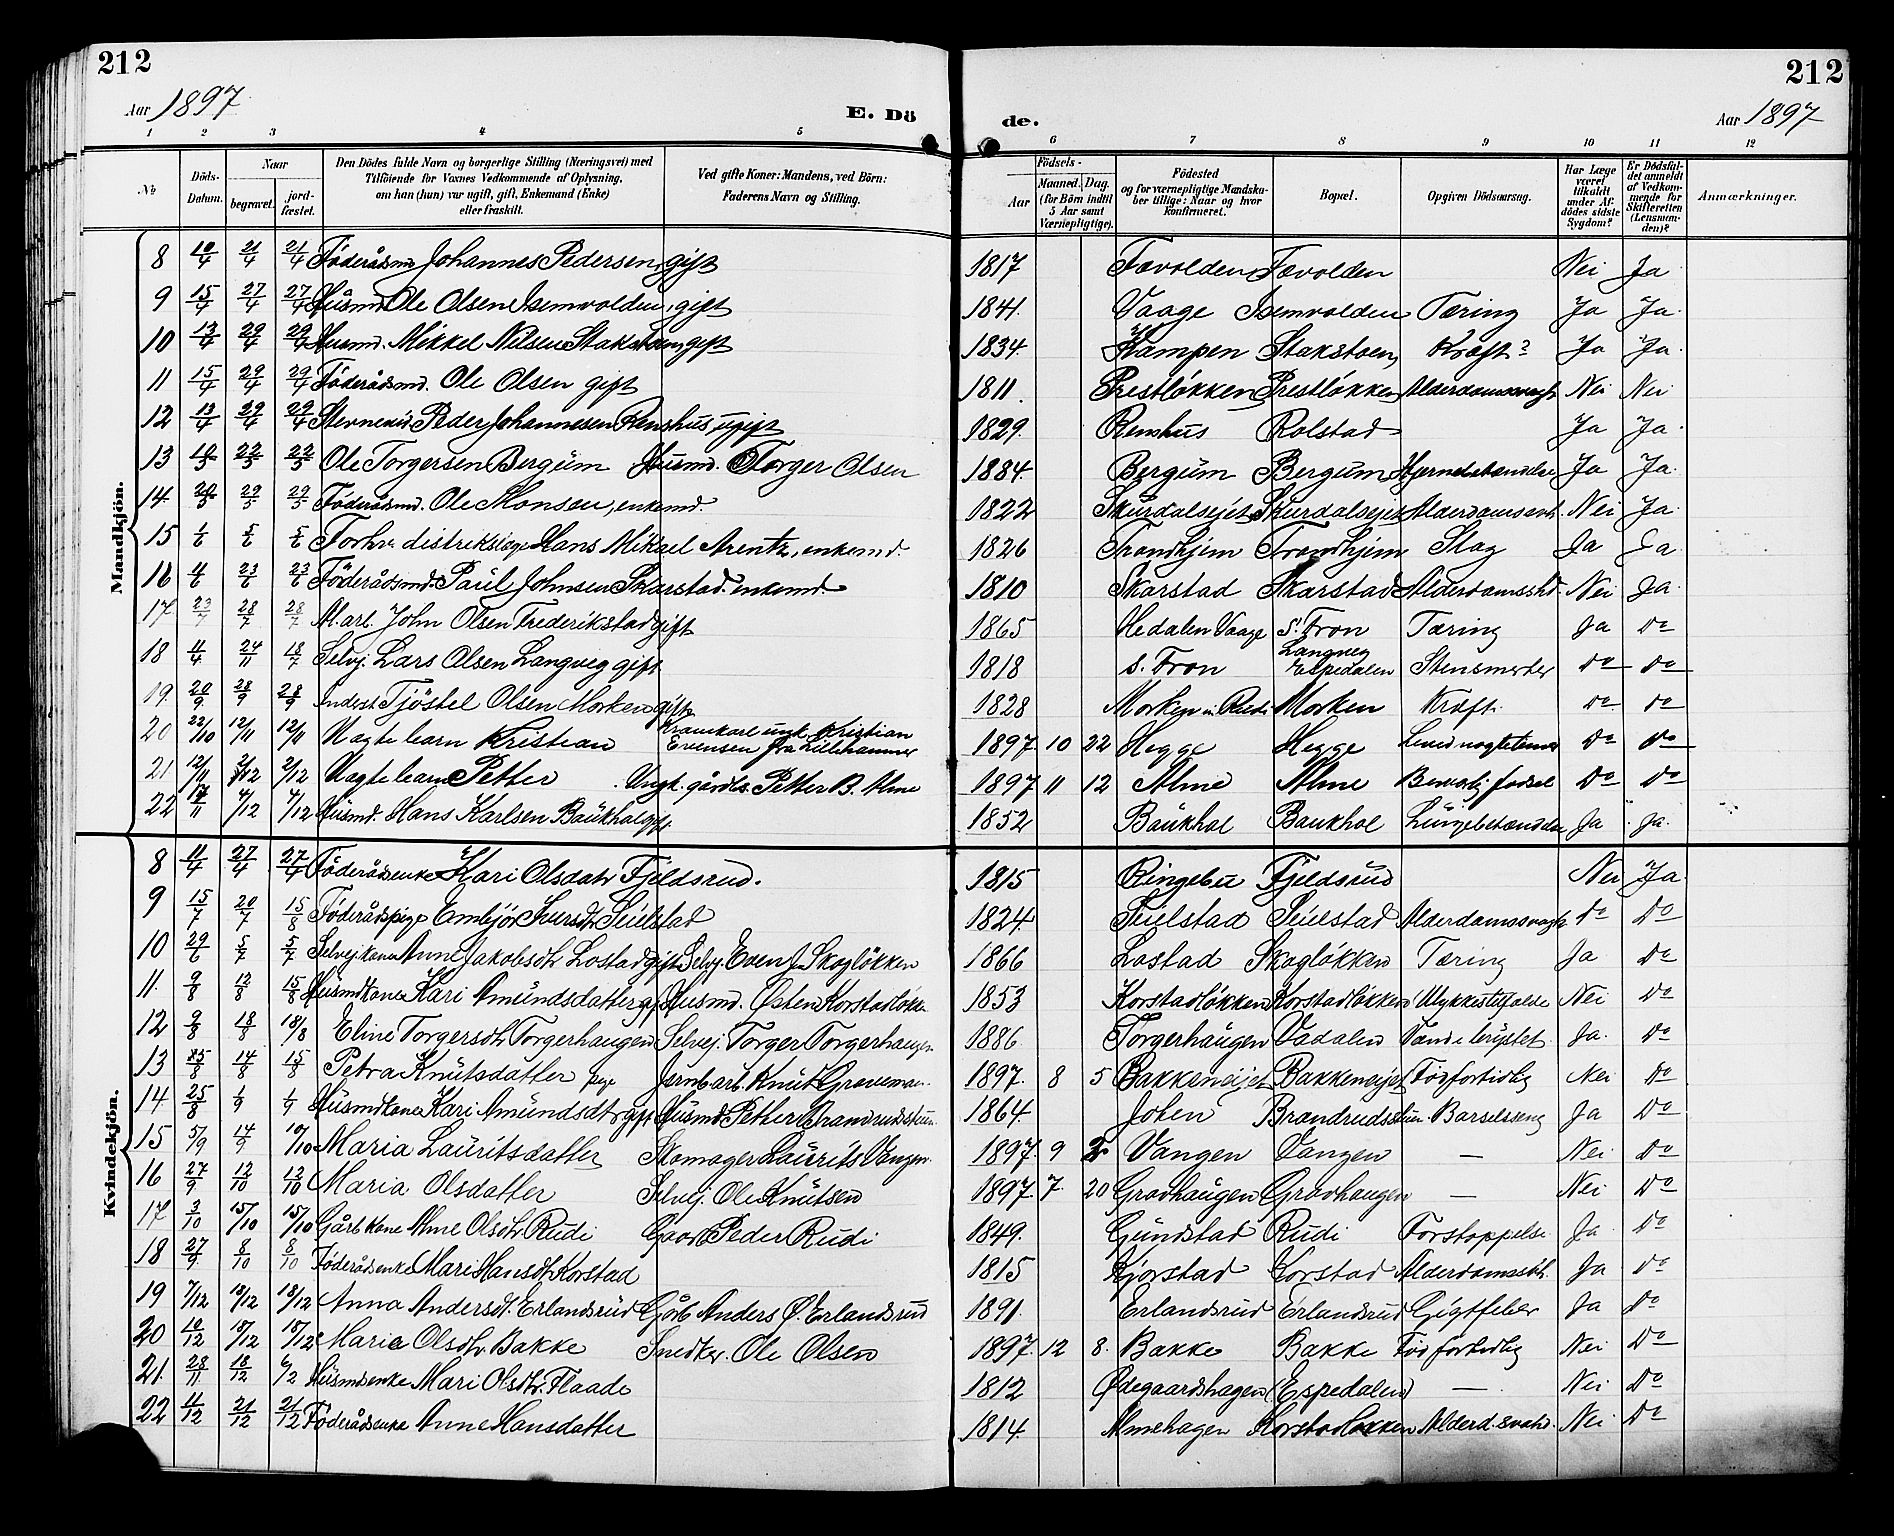 212
212
Aar 1897
E. Dö
de.
Aar 1897
1 2 3 4 5 6 7 8 9 10 11 12
No
Döds-Datum.
Naar
begravet.
jordfæstet.
Den Dödes fulde Navn og borgerlige Stilling (Næringsvei) med Tilföiende for Voxnes Vedkommende af Oplysning, om han (hun) var ugift, gift, Enkemand (Enke) eller fraskilt.
Ved gifte Koner: Mandens, ved Börn: Faderens Navn og Stilling.
Födsels-
Aar
Maaned. Dag.
(for Börn indtil 5 Aar samt Værnepligtige).
Födested og for værnepligtige Mandskaber tillige: Naar og hvor konfirmeret.
Bopæl.
Opgiven Dödsaarsag.
Har Læge været tilkaldt under Afdödes sidste Sygdom?
Er Dödsfaldet anmeldt af Vedkommende for Skifteretten (Lensmanden)?
Anmærkninger.
Mandkjön.
8 10/4 21/4 21/4 Föderådsmd Johannes Pedersen, gift 1817 Tævolden Tævolden Nei Ja
9 15/4 27/4 27/4 Husmd. Ole Olsen Isemvolden, gift 1841. Vaage Isemvolden Tæring Ja Ja.
10 13/4 29/4 29/4 Husmd. Mikkel Nilsen Stakstoen, gift 1834. Kampen Stakstoen, Kræft? Ja Ja.
11 15/4 29/4 29/4 Föderådsmd. Ole Olsen gift 1811. Prestløkken Prestløkken Alderdomssvagh Nei Nei
12 13/4 29/4 29/4 Peder Johannesen Renshus ugift 1829. Renshus Rolstad Ja Ja.
13 10/5 22/5 22/5 Ole Torgersen Bergum Husmd. Torger Olsen 1884. Bergum Bergum Hjernebetændelse Ja Ja.
14. 20/5 29/5 29/5 Föderådsmd. Ole Monsen, enkemd. 1822 Skurdalsejet Skurdalsejet Alderdomssvh. Nei Ja.
15 1/6 5/6 5/6 Forhv. distriktslæge Hans Mikael Arentz, enkemd. 1826 Trondhjem Trondhjem Slag Ja Ja
16 4/6 23/6 23/6 Föderådsmd. Paul Johnsen Skarstad. enkemd. 1810 Skarstad Skarstad Alderdomssvhd. Nei Ja.
17. 23/7 28/7 28/7 Arb. John Olsen Frederikstad gift 1865 Hedalen Vaage S. Fron Tæring Ja Do
18 11/4 24/11 18/7 Selvej. Lars Olsen Langveg gift 1818 S. Fron Langveg Espedalen Stensmerter Do Do
19. 20/9 28/9 28/9 Inderst Tjöstel Olsen Morken gift 1828 Morken Morken Kræft. Do Do
20 22/10 12/11 12/11 Uægte barn Kristian Kramkarl ungk. Kristian Evensen fra Lillehammer 1897 10 22 Hegge Hegge Do Do
21 12/11 2/12 2/12 Uægte barn Petter Ungk. gårdbr. Petter B. Alme 1897 11 12 Alme Alme fødsel Do Do
22 17/11 4/12 4/12 Husmd. Hans Karlsen Baukhol gift 1852 Baukhol Baukhol Lungebetændelse Ja Ja.
Kvindekjön.
8 11/4 27/4 27/4 Föderådsenke Kari Olsdatr Fjeldsrud. 1815 Ringebu Fjeldsrud Nei Ja
9 15/7 20/7 15/8 Föderådspige Embjör Seielstad 1824. Seielstad Seielstad Alderdomssvagh Do Do
10 29/6 5/7 5/7 Selvejkone Anne Jakobsdtr Lostad gift Selvej. Even J. Skogløkken 1866 Lostad Skogløkken Tæring Ja Do
11. 9/8 12/8 15/8 Husmdkone Kari Amundsdatter gift Husmd. Østen Korstadløkken 1853 Korstadløkken Korstadløkken Ulykkestilfælde Nei Do
12 9/8 18/8 18/8 Eline Torgersdtr Torgerhaugen Selvej. Torger Torgerhaugen 1886 Torgerhaugen Vadalen Vand i brystet. Ja. Do
13 8/8 14/8 15/8 Petra Knutsdatter pige Jernbarb. Knut Graveman 1897. 8 5 Bakkeneiet Bakkeneiet Fød fortidlig Nei Do
14 25/8 1/9 1/9 Husmdkone Kari Amundsdtr gift Husmd. Petter Brandrudsstuen. 1864. Joten Brandrudsstuen Barselseng Ja Do
15 5/9 14/9 10/10 Maria Lauritsdatter Skomager Laurits Vangen. 1897. 9 2 Vangen Vangen — Nei Do
16 27/9 12/10 12/10 Maria Olsdatter Selvej. Ole Knutsen 1897. 7. 20 Gravhaugen Gravhaugen — Nei Do
17 3/10 15/10 15/10 Gårbkone Anne Olsdtr Rudi Gaarb. Peder Rudi 1849. Gundstad Rudi Forstoppelse Ja Do
18 27/9 8/10 8/10 Föderådsenke Mari Hansdtr Korstad 1815 Kjorstad Korstad Alderdomssvh. Ja Do
19 7/12 18/12 18/12 Anna Andersdt. Erlandsrud Gårb Anders Ø. Erlandsrud 1891. Erlandsrud Erlandsrud Gigtfeber Ja Do
20 10/12 18/12 18/12 Maria Olsdtr. Bakke Snedker. Ole Olsen 1897. 12 8. Bakke Bakke Fød fortidlig Nei Do
21. 28/11 18/12 6/2 Husmdsenke Mari Olsdtr. Flaade 1812 Ødegaardshagen (Espedalen) — Nei Do
22 11/12 21/12 21/12 Föderådsenke Anne Hansdatter 1814. Almehagen Korstadløkken Alderd.svahd. Nei Do